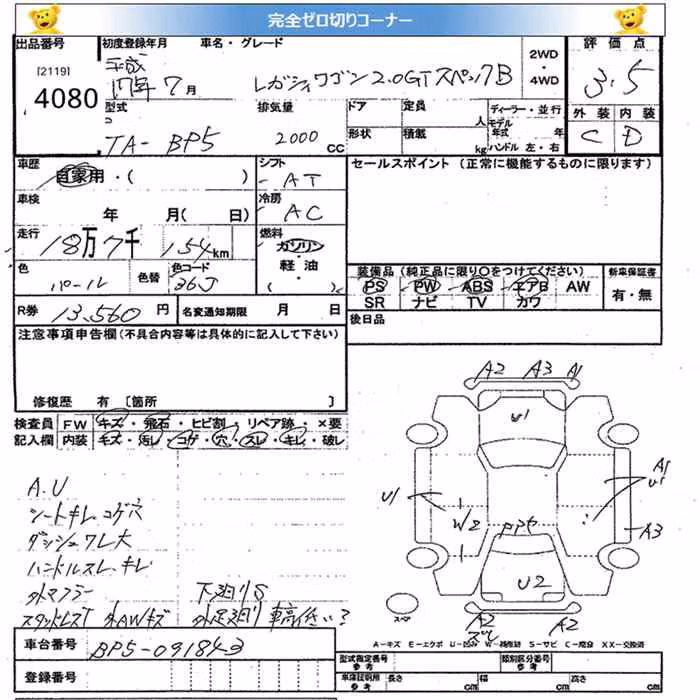 完全ゼロ切りコーナー
出品番号 初度登録年月 車名・グレード 2WD ・ 4WD 評価点
[2119] 平成 17年 7月 レガシィワゴン 2.0GTスペックB 3.5
4080 型式 排気量 ドア 定員 人 ディーラー・並行 外装 内装
TA- BP5 2000 CC 形状 積載 kg モデル年式 年 ハンドル 左・右 C D
車歴 自家用・( ) シフト AT セールスポイント (正常に機能するものに限ります)
車検 年 月( 日) 冷房 AC
走行 18万7千 154km 燃料 ガソリン・軽油・( )
色 パール 色替 色コード 36J
装備品 (純正品に限り○をつけてください) 新車保証書
PS PW ABS エアB AW 有・無
SR ナビ TV カワ
R券 13,560円 名変通知期限 月 日 後日品
注意事項申告欄 (不具合内容等は具体的に記入して下さい)
修復歴 有 〔箇所 〕
検査員 FW キズ・飛石・ヒビ割・リペア跡・×要
記入欄 内装 キズ・汚レ・コゲ・穴・スレ・キレ・破レ
A2 A3 A1
U1
U1 W2 PP5 A1 U1
A3
U2
A2 A2
スペア
A.U
シートキレ、コゲ穴
ダッシュワレ大
ハンドルスレ、キレ
外マフラー 下廻りS
スタッドレスT 外AWキズ 外足廻り 車高低い?
車台番号 BP5-091843
登録番号
A-キズ E-エクボ U-凹み W-補修跡 S-サビ C-腐食 XX-交換済
型式指定番号 参考 類別区分番号 参考
車庫証明所 参考 長さ cm 幅 cm 高さ cm